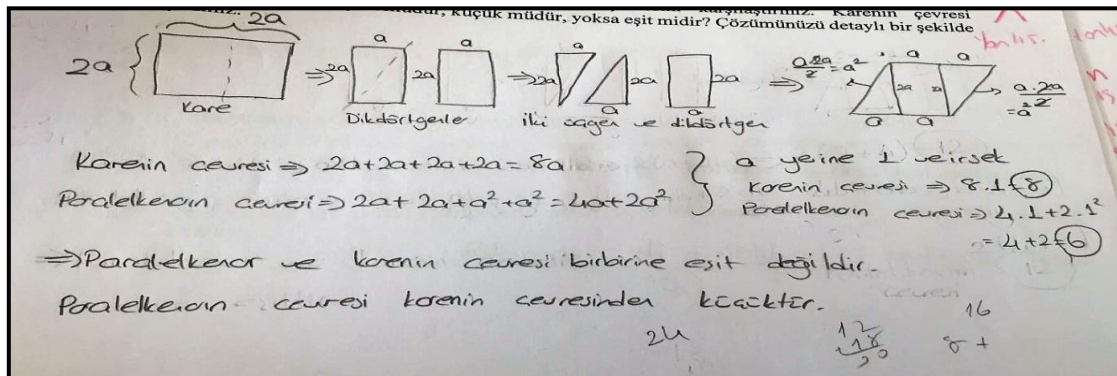 küçük müdür, yoksa eşit midir? Çözümünüzü detaylı bir şekilde
Karenin çevresi
Yanlış.
2a
2a
Kare
⇒ 2a a 2a a
Dikdörtgenler
⇒ 2a a 2a a 2a a
iki üçgen ve dikdörtgen
⇒ a.2a/2 = a² a a 2a a a a.2a/2 = a²
Karenin çevresi ⇒ 2a+2a+2a+2a = 8a
Paralelkenarın çevresi ⇒ 2a+2a+a²+a² = 4a+2a²
a yeine 1 veirsek
Karenin çevresi ⇒ 8.1=8
Paralelkenarın çevresi ⇒ 4.1+2.1²
= 4+2=6
⇒ Paralelkenar ve karenin çevresi birbirine eşit değildir.
Paralelkenarın çevresi karenin çevresinden küçüktür.
24
12
18
16
8 +